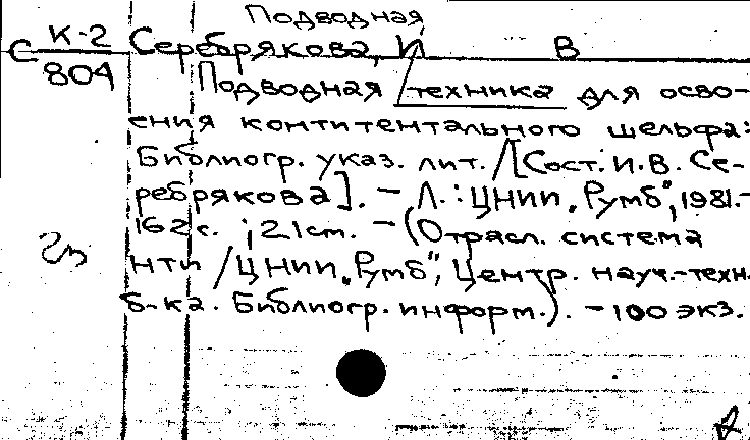 Подводная
С К-2 Серебрякова, И В
804
Подводная техника для осво-
ения контитентального шельфа:
Библиогр. указ. лит. /[Сост. И.В. Се-
ребрякова]. - Л.: ЦНИИ "Румб", 1981.-
162 с. ; 21 cm. - (Отрасл. система
нти / ЦНИИ "Румб", Центр. науч.-техн.
б-ка. Библиогр. информ.). - 100 экз.